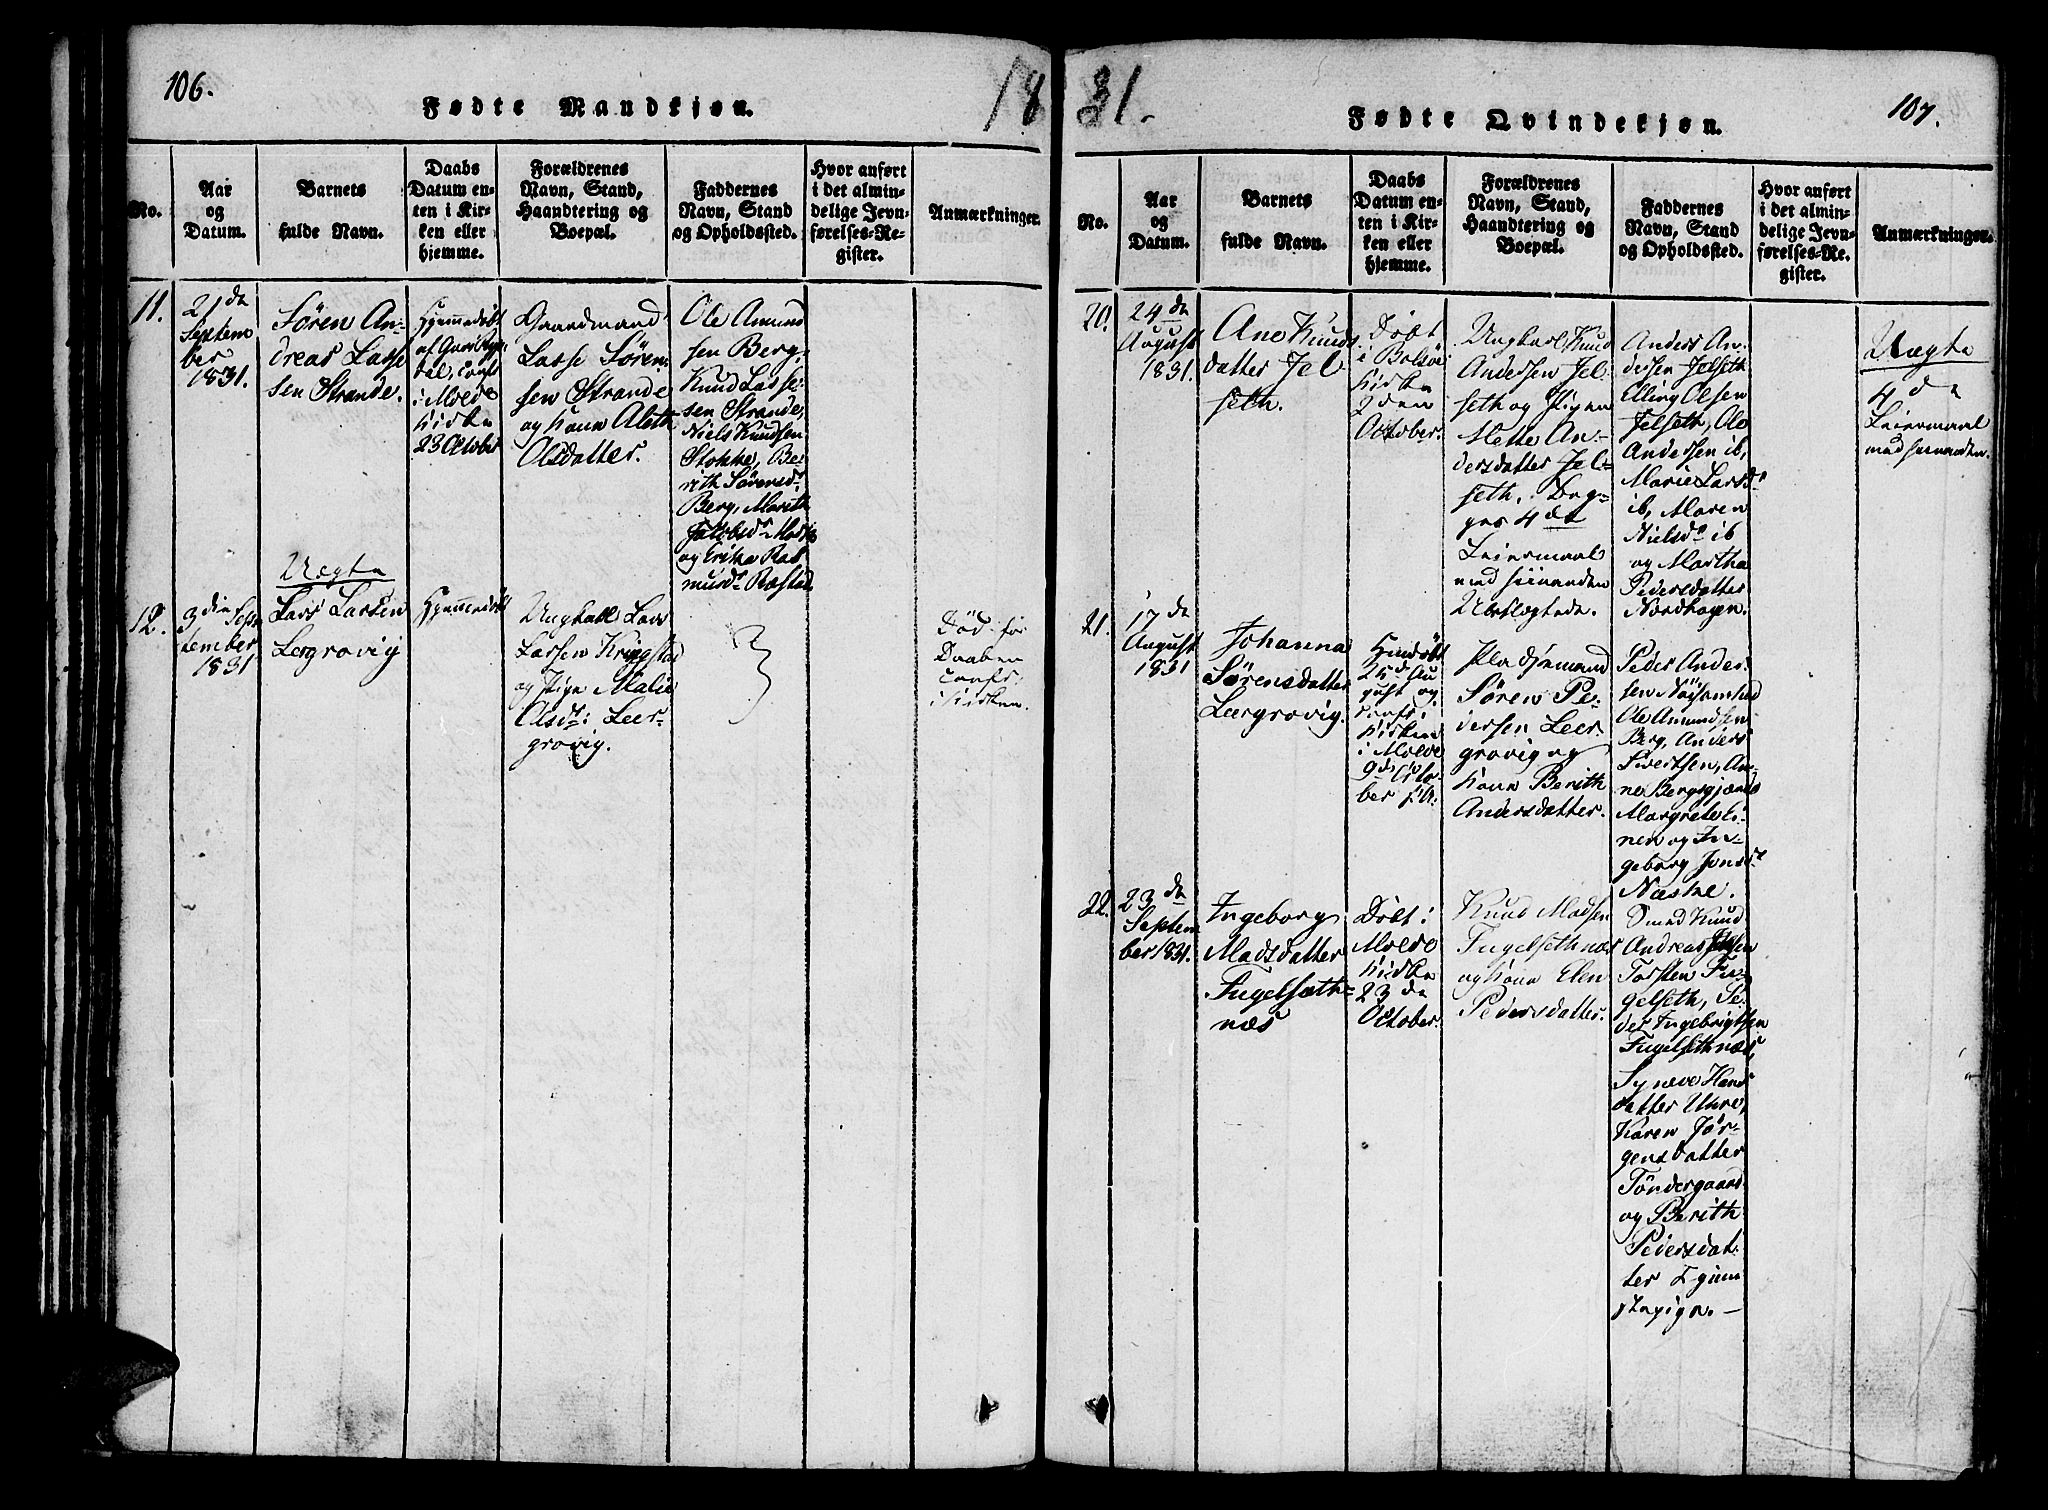 106.
Fødte Mandkjøn.
18
No.
Aar
og
Datum.
Barnets
fulde Navn.
Daabs
Datum en-
ten i Kir-
ken eller
hjemme.
Forældrenes
Navn, Stand,
Haandtering og
Boepæl.
Faddernes
Navn, Stand
og Opholdssted.
Hvor anført
i det almin-
delige Jevn-
førelses-Re-
gister.
Anmærkninger.
11.
21de
Septem
ber
1831.
Søren An-
dreas Lasse
sen Strande.
Hjemmedøbt
af
dal, conf.
i Molde
Kirke
23 October
Gaardmand
Lasse Søren-
sen Strande
og Kone Aleth
Olsdatter.
Ole Amund
sen Berg,
Knud Lasse-
sen Strande,
Niels Knudsen
Stokke, Be-
rith Sørensdr
Berg, Marith
Jakobsdr
og Erika Ras
musdr Røstad
12.
9den Sep-
tember
1831
Uægte
Lars Larsen
Lergrovig
Hjemmedøbt
Ungkall Lars
Larsen Kringstad
og Pige Malie
Olsdr: Leer-
grovig.
Død før
Daaben
conf:
i Kirken.
31.
Fødte Qvindekjøn.
107.
No.
Aar
og
Datum.
Barnets
fulde Navn.
Daabs
Datum en-
ten i Kir-
ken eller
hjemme.
Forældrenes
Navn, Stand,
Haandtering og
Boepæl.
Faddernes
Navn, Stand
og Opholdssted.
Hvor anført
i det almin-
delige Jevn-
førelses-Re-
gister.
Anmærkninger.
20.
24de
August
1831.
Ane Knuds
datter Jel
seth.
Døbt
i Bolsø
Kirke
2den
October.
Ungkarl Knud
Andersen Jel-
seth og Pigen
Mette An-
dersdatter Jel-
seth. Beg-
ges 4de
Leiermaal
med hinanden
Ubeslægtede.
Anders An-
dersen Jelseth
Elling Olsen
Jelseth, Ole
Andersen ib,
Marie Larsdr
ib, Maren
Nielsdr ib
og Martha
Pedersdatter
Nordhagen.
Uægte
4de
Leiermaal
med hinanden.
21.
17de
August
1831
Johanna
Sørensdatter
Leergrovig.
Hiemdøbt
25de Au
gust og
conf: i
Kirken
i Molde
9de Octo-
ber
Pladsmand
Søren Pe-
dersen Leer-
grovig og
Kone Berith
Andersdatter.
Peder Ander-
sen Nøisomhed
Ole Amundsen
Berg, Anders
Sivertsen, An-
ne Bergsgjerde
Margrete
nen og In-
geborg Jonsdr
Næstne.
22.
23de
Septem
ber 1831.
Ingeborg
Madsdatter
Fugelseth-
næs
Døbt i
Molde
Kirke
23de
October.
Knud Madsen
Fugelsethnæs
og Kone Elen
Pedersdatter.
Smed Knud
Andreas
Torsten Fu-
gelseth, Pe-
der Ingebrigtsen
Fugelsethnæs,
Syneve Hans
datter Uhre,
Karen Jør-
gensdatter
Tøndergaard
og Berith
Pedersdat-
ter